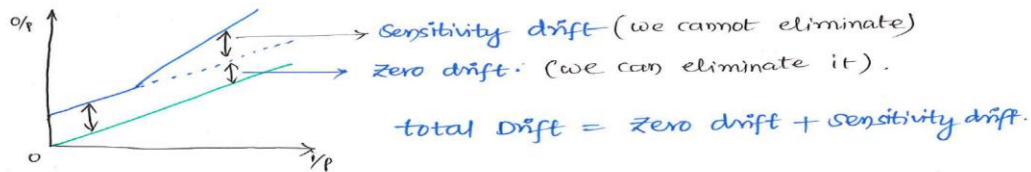 O/p
Sensitivity drift (we cannot eliminate)
Zero drift. (we can eliminate it).
total Drift = Zero drift + Sensitivity drift.
O
i/p